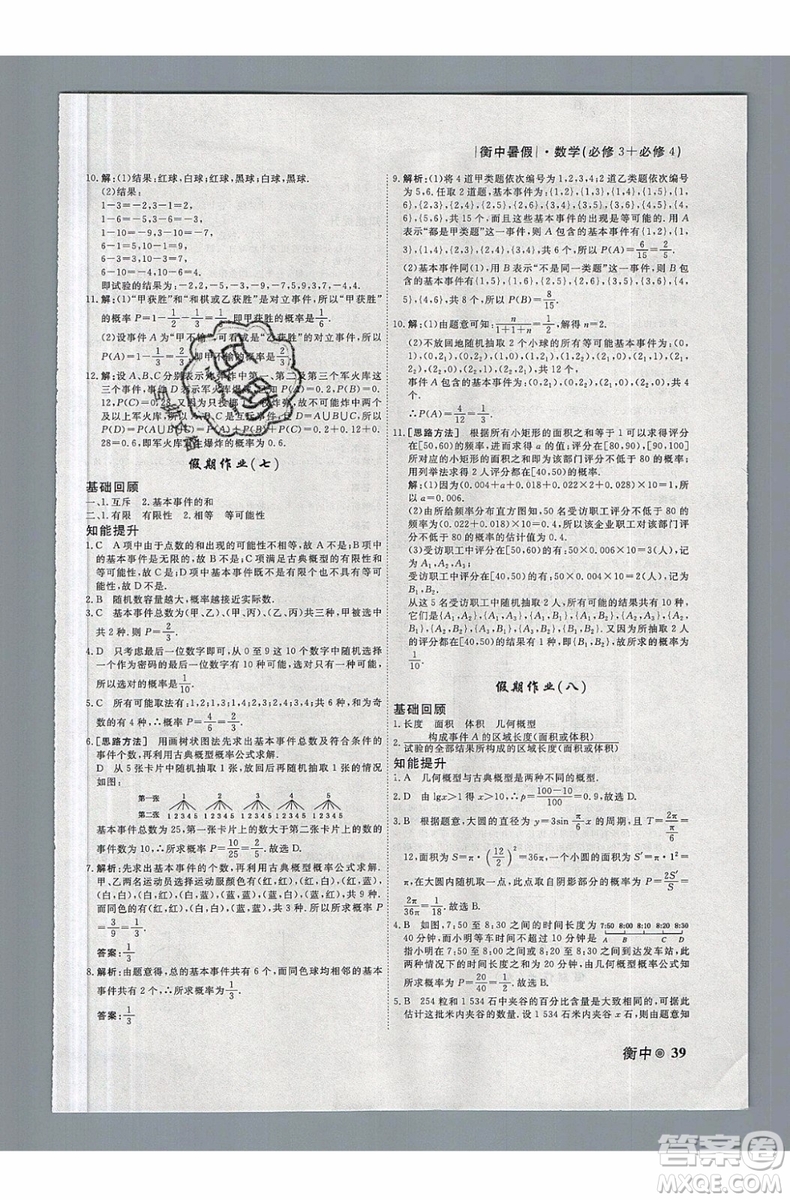 |衡中暑假|·数学(必修3+必修4)
10.解:(1)结果:红球,白球;红球,黑球;白球,黑球.
(2)结果:
1-3=-2,3-1=2.
1-6=-5,6-1=5.
1-10=-9,10-1=9.
3-6=-3,6-3=3.
3-10=-7,10-3=7.
6-10=-4,10-6=4.
即试验的结果为:-2,2,-5,5,-9,9,-3,3,-7,7,-4,4.
11.解:(1)“甲获胜”和“和棋或乙获胜”是对立事件,所以“甲获胜”
的概率P=1-1/2-1/3=1/6.即甲获胜的概率是1/6.
(2)设事件A为“甲不输”,
P(A)=1-1/3=2/3.即甲不输的概率是2/3.
12.解:设A、B、C分别表示
三个事件,事件D表示军火库爆炸,已知P(A)=0.2,P(B)=
0.12,P(C)=0.28.
个及以上军火库,所以有D=A∪B∪C,
P(D)=P(A∪B∪C)=P(A)+P(B)+P(C)=0.2+0.12+
0.28=0.6,即军火库发生爆炸的概率为0.6.
假期作业(七)
基础回顾
一、1.互斥 2.基本事件的和
二、1.有限 有限性 2.相等 等可能性
知能提升
1.C A项中由于点数的和出现的可能性不相等,故A不是;B项中
的基本事件是无限的,故B不是;C项中满足古典概型的有限性和
等可能性,故C是;D项中基本事件既不是有限个也不具有等可能性.
2.B 随机数容量越大,概率越接近实际数.
3.C 基本事件总数为(甲、乙)、(甲、丙)、(乙、丙)共3种.甲被选
中共2种.则P=2/3.
4.D 只考虑最后一位数字即可,从0至9这10个数字中随机选择
一个作为密码的最后一位数字有10种可能,选对只有一种可能,
所以选对的概率是1/10.
5.C 所有可能取法有:1,2;1,3;1,4;2,3;2,4;3,4共6种,和为奇
数的有4种,故P=4/6=2/3.
6.[思路方法] 用画树状图法先求出基本事件总数及符合条件的
事件个数,再利用古典概型概率公式求解.
D 从5张卡片中随机抽取1张,放回后再随机抽取1张的情况
如图:
第一张 1 2 3 4 5
第二张 12345 12345 12345 12345 12345
基本事件总数为25,第一张卡片上的数大于第二张卡片上的数的
事件数为10,所求概率P=10/25=2/5.故选D.
7.解析:先求出基本事件的个数,再利用古典概型概率公式求解.
甲、乙两名运动员选择运动服颜色有(红,红),(红,白),(红,蓝),
(白,白),(白,红),(白,蓝),(蓝,蓝),(蓝,白),(蓝,红),共9种.
而同色的有(红,红),(白,白),(蓝,蓝),共3种.所以所求概率P
=3/9=1/3.
答案:1/3
8.解析:由题意得,总的基本事件个数为6,其中同色球均相邻的基
本事件个数为2,∴所求概率为1/3.
答案:1/3
9.解析:(1)将4道甲类题依次编号为1,2,3,4;2道乙类题依次编号
为5,6.任取2道题,基本事件为:{1,2},{1,3},{1,4},{1,5},{1,
6},{2,3},{2,4},{2,5},{2,6},{3,4},{3,5},{3,6},{4,5},{4,
6},{5,6},共15个,而且这些基本事件的出现是等可能的.用A
表示“都是甲类题”这一事件,则A包含的基本事件有{1,2},{1,
3},{1,4},{2,3},{2,4},{3,4},共6个,所以P(A)=6/15=2/5.
(2)基本事件同(1),用B表示“不是同一类题”这一事件,则B包
含的基本事件有{1,5},{1,6},{2,5},{2,6},{3,5},{3,6},{4,
5},{4,6},共8个,所以P(B)=8/15.
10.解:(1)由题意可知:n/(1+1+n)=1/2,解得n=2.
(2)不放回地随机抽取2个小球的所有等可能基本事件为:(0,
1),(0,2₁),(0,2₂),(1,0),(1,2₁),(1,2₂),(2₁,0),(2₁,1),
(2₁,2₂),(2₂,0),(2₂,1),(2₂,2₁),共12个.
事件A包含的基本事件为:(0,2₁),(0,2₂),(2₁,0),(2₂,0),共
4个.
∴P(A)=4/12=1/3.
11.[思路方法] 根据所有小矩形的面积之和等于1可以求出评分
在[50,60)的频率,评分不低于80,即评分在[80,90),[90,100],
用列举法可以求出2人评分都在[40,50)的概率.
解:(1)因为(0.004+a+0.018+0.022×2+0.028)×10=1,所
以a=0.006.
(2)由所给频率分布直方图知,50名受访职工评分不低于80的
概率为(0.022+0.018)×10=0.4,所以该企业职工对该部门评
分不低于80的概率的估计值为0.4.
(3)受访职工中评分在[50,60)的有:50×0.006×10=3(人),记
为A₁,A₂,A₃;
受访职工中评分在[40,50)的有:50×0.004×10=2(人),记为
B₁,B₂.
从这5名受访职工中随机抽取2人,所有可能的结果共有10种,
它们是{A₁,A₂},{A₁,A₃},{A₁,B₁},{A₁,B₂},{A₂,A₃},{A₂,
B₁},{A₂,B₂},{A₃,B₁},{A₃,B₂},{B₁,B₂}.又因为所抽取2人
的评分都在[40,50)的结果有1种,即{B₁,B₂},故所求的概率为
1/10.
假期作业(八)
基础回顾
1.长度 面积 体积 几何概型
2.构成事件A的区域长度(面积或体积)/试验的全部结果所构成的区域长度(面积或体积)
知能提升
1.A 几何概型与古典概型是两种不同的概型.
2.D 由lgx>1得x>10,∴p=(100-10)/100=0.9,故选D.
3.B 根据题意,大圆的直径为y=3sin π/6 x的周期,且T=2π/(π/6)=
12,面积S=π·(12/2)²=36π,一个小圆的面积S′=π·1²
=π,在大圆内随机取一点,此点取自阴影部分的概率为P=2S′/S=
2π/36π=1/18.故选B.
4.B 如图,7:50至8:30之间的时间长度为
40分钟,而小明等车时间不超过10分钟是
指小明在7:50至8:00或8:20至8:30之间到达发车站,
此两种情况下的时间长度之和为20分钟,由几何概型概率公式知
所求概率为P=20/40=1/2.故选B.
7:50 8:00 8:10 8:20 8:30
A B C D
5.B 254粒和1 534石中夹谷的百分比含量是大致相同的,可据此
估计这批米内夹谷的数量.设1 534石米中夹谷的数量为x石,由题
衡中 39
答案圈
MXQE.COM